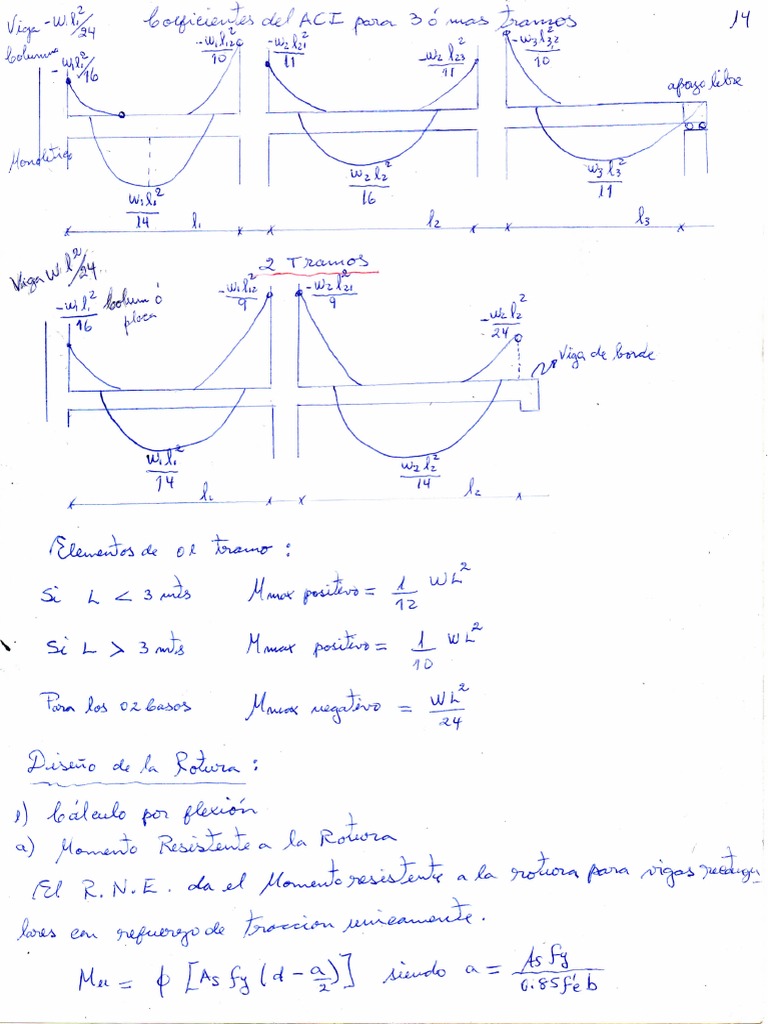 Coeficientes del ACI para 3 ó mas tramos
14
Viga -W₁l₁²/24
Columna
-W₁l₁²/16
-W₁l₁₂²/10
-W₂l₂₁²/11
-W₂l₂₃²/11
-W₃l₃,₂²/10
apoyo libre
Monolítico
W₁l₁²/14
W₂l₂²/16
W₃l₃²/11
l₁
l₂
l₃
2 Tramos
Viga W₁l²/24
-W₁l₁²/16
Colum ó
placa
-W₁l₁₂²/9
-W₂l₂₁²/9
-W₂l₂²/24
Viga de borde
W₁l₁²/14
W₂l₂²/14
l₁
l₂
Elementos de 01 tramo :
Si L < 3 mts Mmax positivo = 1/12 WL²
Si L > 3 mts Mmax positivo = 1/10 WL²
Para los 02 casos Mmax negativo = WL²/24
Diseño de la Rotura :
1) Cálculo por flexión
a) Momento Resistente a la Rotura
El R.N.E. da el Momento resistente a la rotura para vigas rectangu
lares con refuerzo de traccion unicamente.
Mu = ϕ [As fy (d - a/2)] siendo a = As fy / 0.85 f'c b